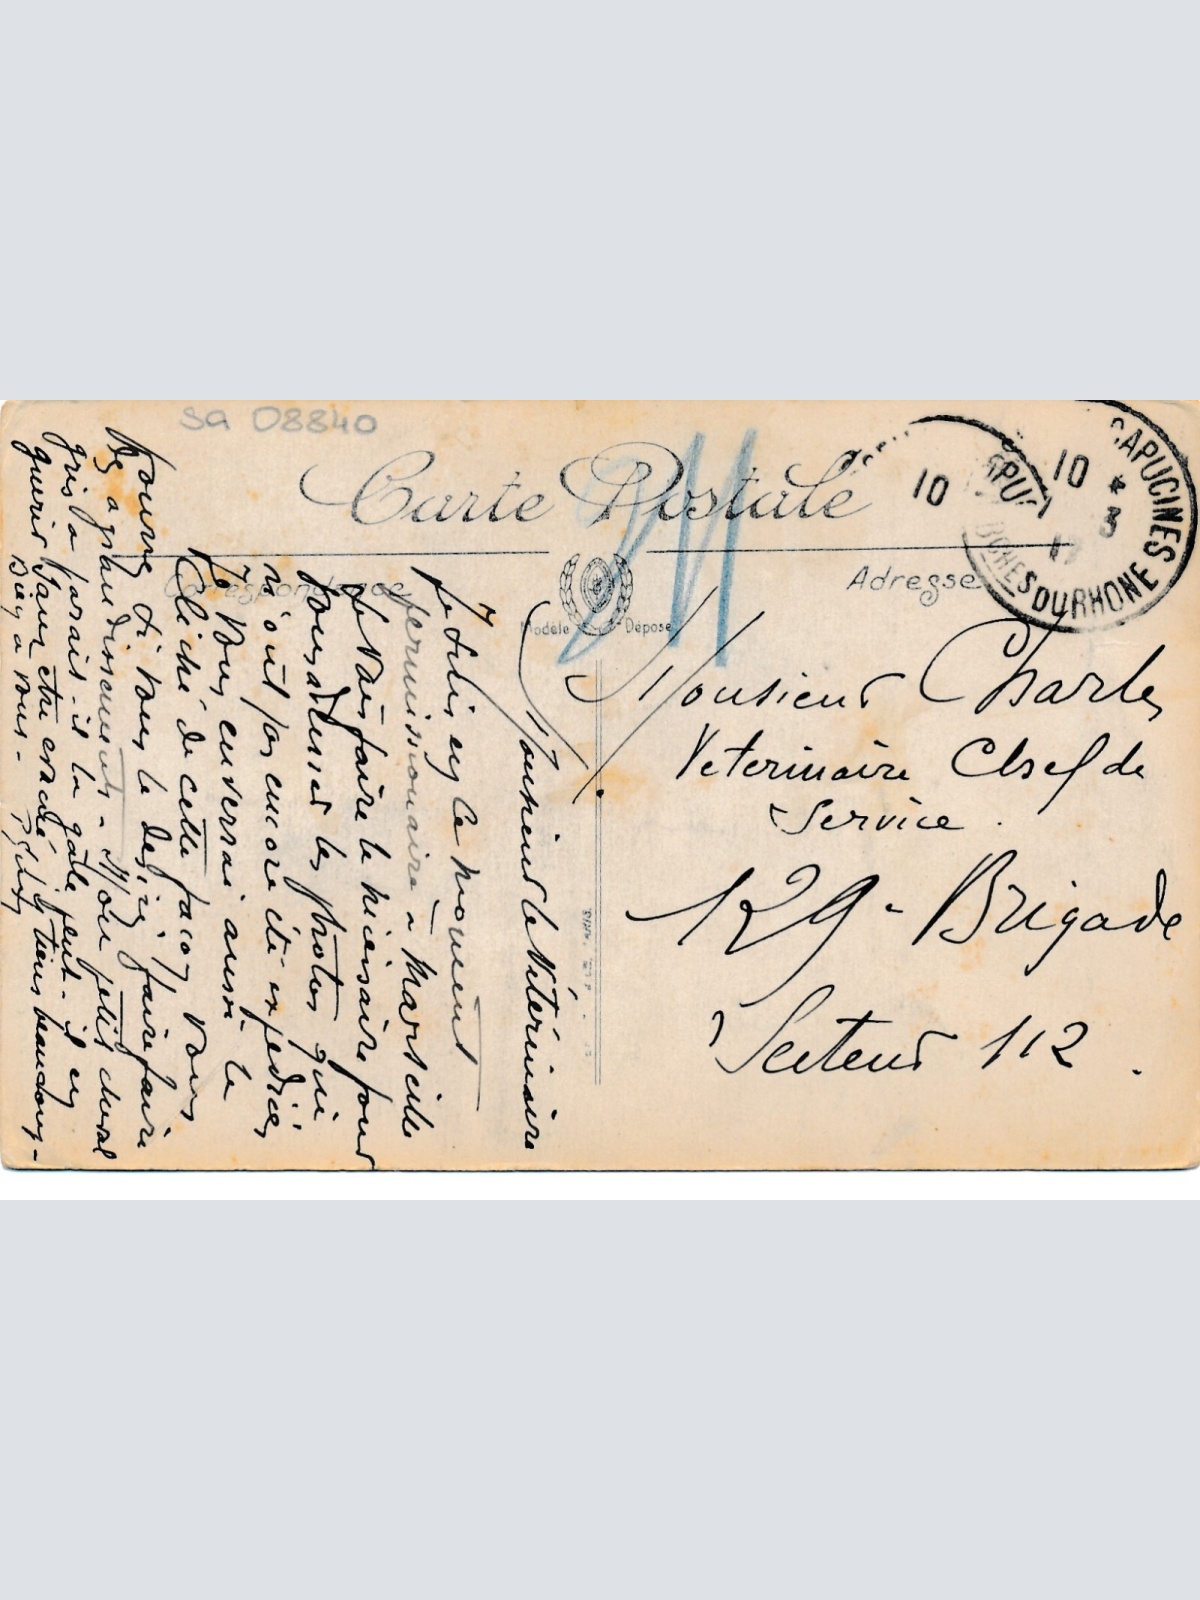 sa 08840
Carte Postale
Correspondance
Adresse
Modèle Déposé
CAPUCINES
BCHES DU RHONE
10
10 * 3
Monsieur Charles
Veterinaire Chef de
Service.
129 - Brigade
Secteur 112.
Monsieur le Vétérinaire
Je suis en ce moment
permissionnaire à Marseille
Je vais faire le nécessaire pour
vous adresser les photos qui
n'ont pas encore été expédiées
Je vous enverrai aussi le
Cliché de cette façon vous
pourrez si vous le désirez faire faire
des agrandissements - Mon petit cheval
gris a parait-il la gale peut-il en
guérir sans être évacué j'y tiens beaucoup -
Bien à vous -